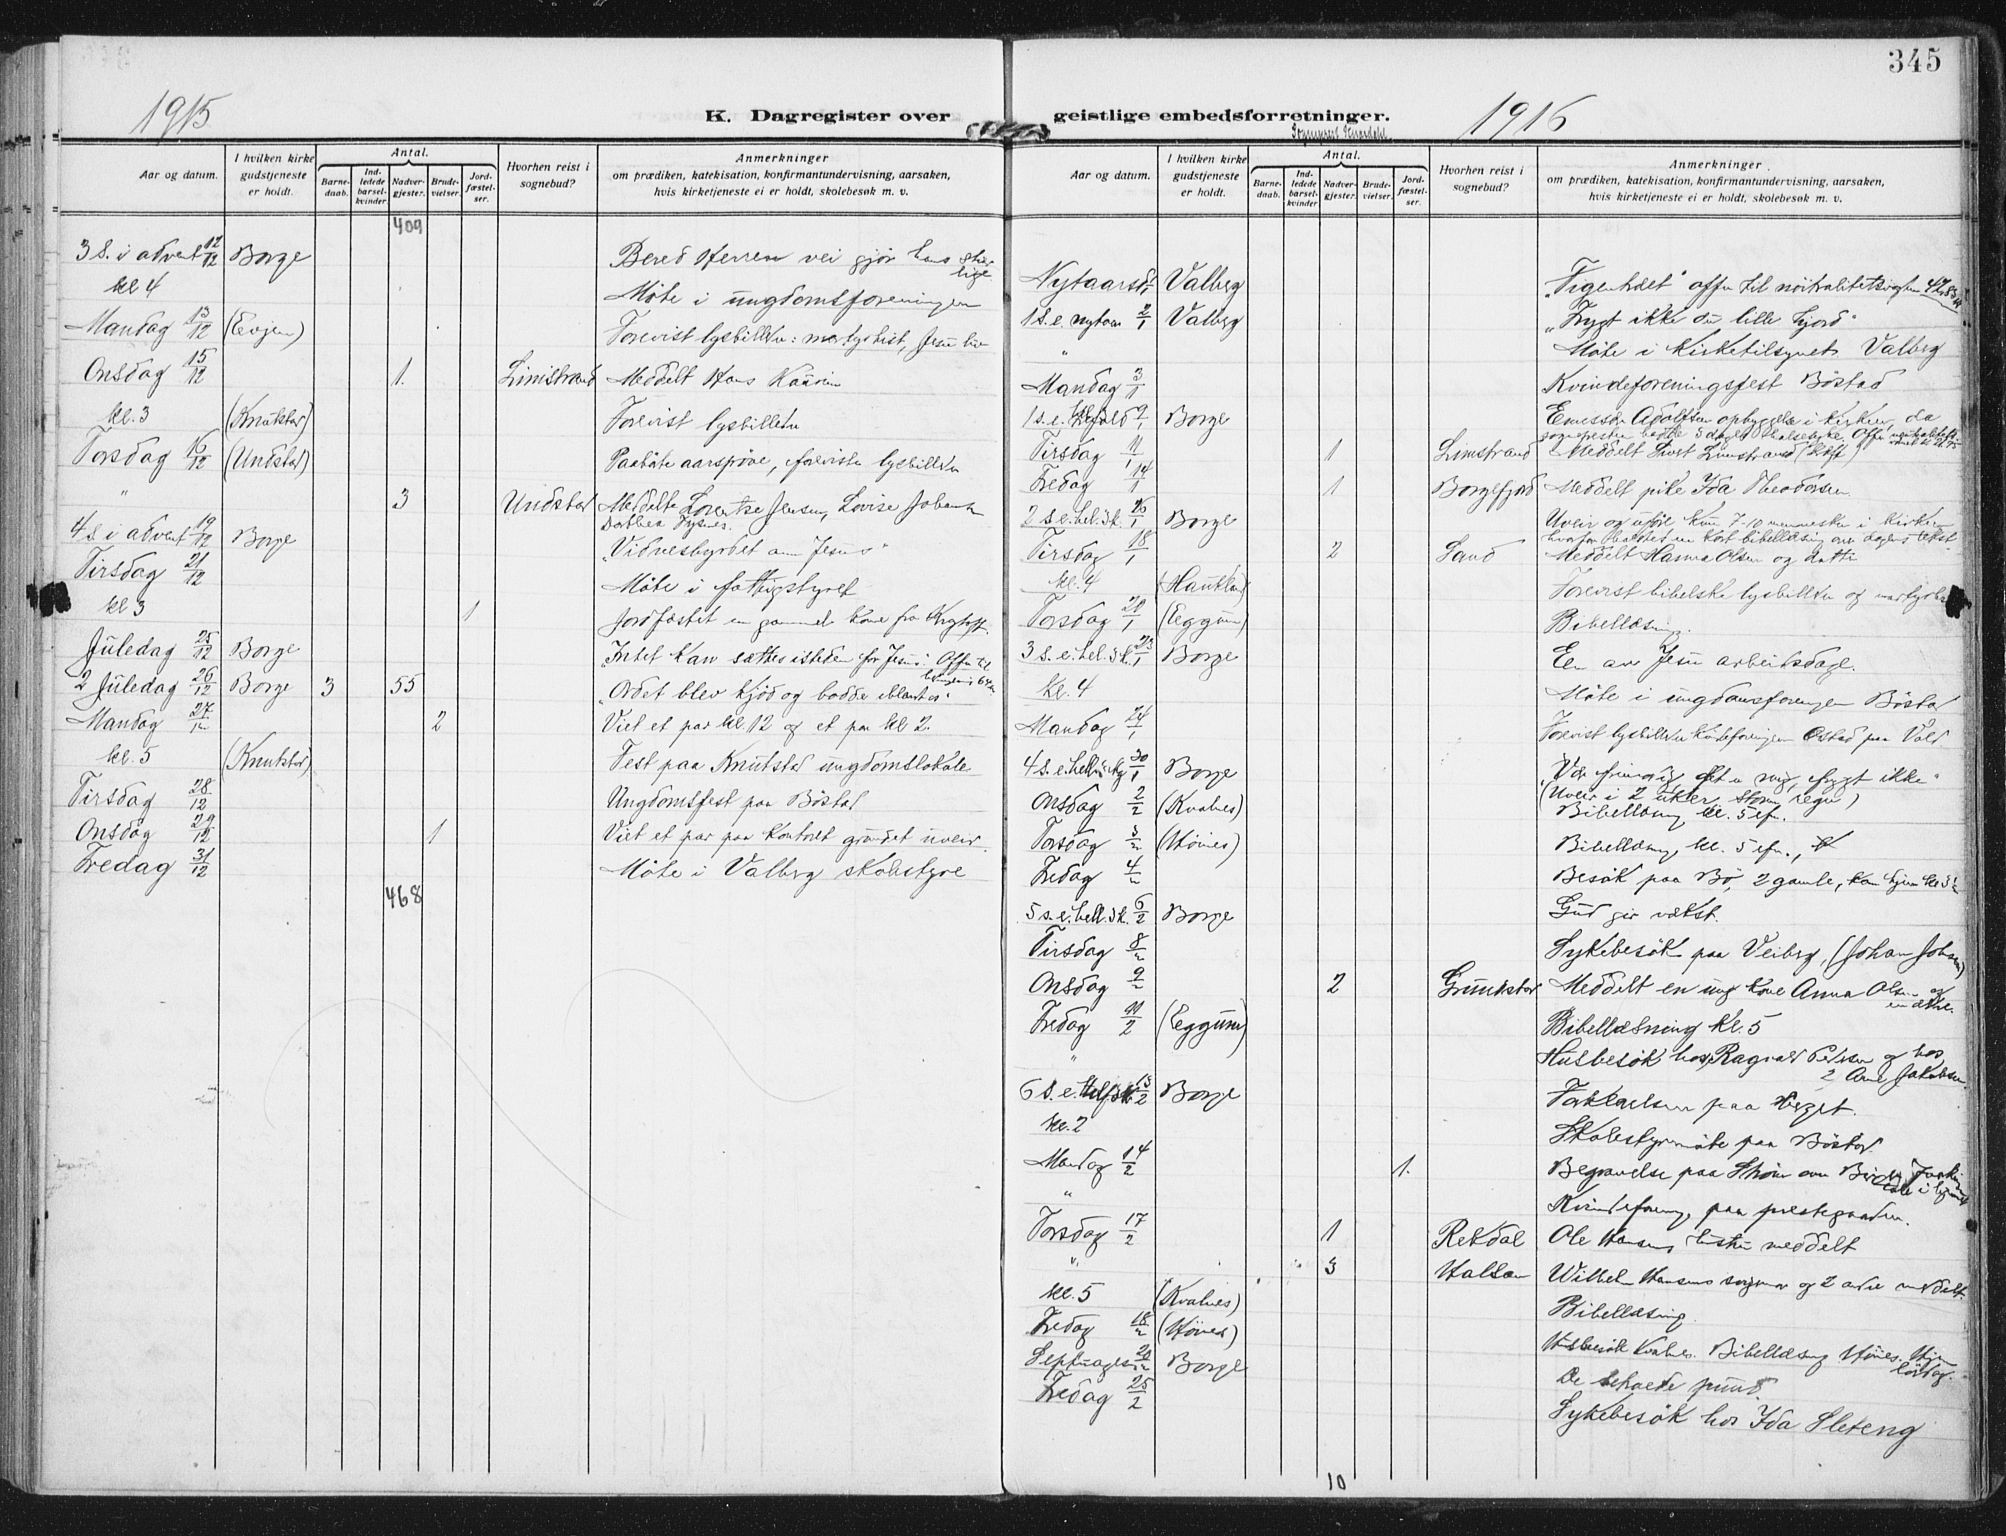 345
1915
K. Dagregister over geistlige embedsforretninger.
1916
Aar og datum. I hvilken kirke gudstjeneste er holdt. Antal. Barnedaab. Indledede barselkvinder. Nadvergjester. Brudevielser. Jordfæstelser. Hvorhen reist i sognebud? Anmerkninger om prædiken, katekisation, konfirmantundervisning, aarsaken, hvis kirketjeneste ei er holdt, skolebesøk m. v.
409
3 S. i advent 12/12 Borge Bered Herren vei gjør hans stier
kl 4 Møte i ungdomsforeningen
Mandag 13/12 (Evjen) Forevist lysbilleder: Jesu liv
Onsdag 15/12 1. Limstrand Meddelt Hans
kl. 3 (Knutstad) Forevist lysbilleder
Torsdag 16/12 (Undstad) aarsprøve, lysbilleder
" 3 Undstad Meddelte Jensen, Lovise
Dorthea
4 S i advent 19/12 Borge "Vidnesbyrdet om Jesus"
Tirsdag 21/12 Møte i fattigstyret
kl 3 1 Jordfæstet en gammel kone fra
Juledag 25/12 Borge "Intet kan sættes isteden for Jesus. Offer til
2 Juledag 26/12 Borge 3 55 "Ordet blev kjød og bodde iblant os"
Mandag 27/12 2 Viet et par kl. 12 og et par kl 2.
kl. 5 (Knutstad) Fest paa Knutstad ungdomslokale
Tirsdag 28/12 Ungdomsfest paa Bøstad
Onsdag 29/12 1 Viet et par paa kontoret grundet uveir.
Fredag 31/12 Møte i Valberg skolestyre
468
Aar og datum. I hvilken kirke gudstjeneste er holdt. Antal. Barnedaab. Indledede barselkvinder. Nadvergjester. Brudevielser. Jordfæstelser. Hvorhen reist i sognebud? Anmerkninger om prædiken, katekisation, konfirmantundervisning, aarsaken, hvis kirketjeneste ei er holdt, skolebesøk m. v.
Nytaarsd 1/1 Valberg "Figentræet" offer til
1 s. e. nytaar 2/1 Valberg "Frygt ikke du lille hjord"
" Møte i kirketilsynet Valberg
Mandag 3/1 Kvindeforeningsfest Bøstad
1 s. e. 9/1 Borge Emissær Adolfsen opbyggelse i kirken, da
Tirsdag 11/1 1 Limstrand Meddelt Limstrand
Fredag 14/1 1 Borgefjord Meddelt pike Ida Theodorsen
2 s. e. hel. 3 k. 16/1 Borge Uveir og uføre kun 7-10 mennesker i kirken
hvorfor holdtes en kort bibellæsning over dagens tekst.
Tirsdag 18/1 2 Sand Meddelt Hanna Olsen og datter
kl. 4 (Haukland) Forevist bibelske lysbilleder og
Torsdag 20/1 (Eggum) Bibellæsning.
3 s. e. hel. 3 k. 23/1 Borge En av Jesu arbeidsdage.
Kl. 4 Møte i ungdomsforeningen Bøstad
Mandag 24/1 Forevist lysbilleder paa Vold
4 s. e. hell. 3 kg 30/1 Borge "Vær frimodig det er mig, frygt ikke"
(Uveir i 2 uker, storm, regn)
Onsdag 2/2 (Kvalnes) Bibellæsning kl. 5 efm.
Torsdag 3/2 (Hønes) Bibellæsning kl. 5 efm.,
Fredag 4/2 Besøk paa Bø, 2 gamle, kom hjem kl 3
5 s. e. hell. 3 k. 6/2 Borge Gud gir vækst.
Tirsdag 8/2 Sykebesøk paa Veiberg, (Johan
Onsdag 9/2 2 Grundstad Meddelt en ung kone Anna Olsen og
en ældre.
Fredag 11/2 (Eggum) Bibellæsning kl. 5
" Husbesøk hos Ragnvald Pedersen og hos
2 Arne Jakobsen.
6 s. e. 13/2 Borge Forklarelsen paa berget.
kl. 2 Skolestyremøte paa Bøstad
Mandag 14/2 1. Begravelse paa
" Kvindeforening paa prestegaarden.
Torsdag 17/2 1 Rekdal Ole Hansens hustru meddelt
" 3 Halsan Wilhelm Hansens og 2 andre meddelt.
kl. 5 (Kvalnes) Bibellæsning.
Fredag 18/2 (Hønes) Husbesøk Kvalnes. Bibellæsning Hønes. Hjem
lørdag.
Septuages. 20/2 Borge De betroede pund.
Fredag 25/2 Sykebesøk hos Ida Sleteng
10